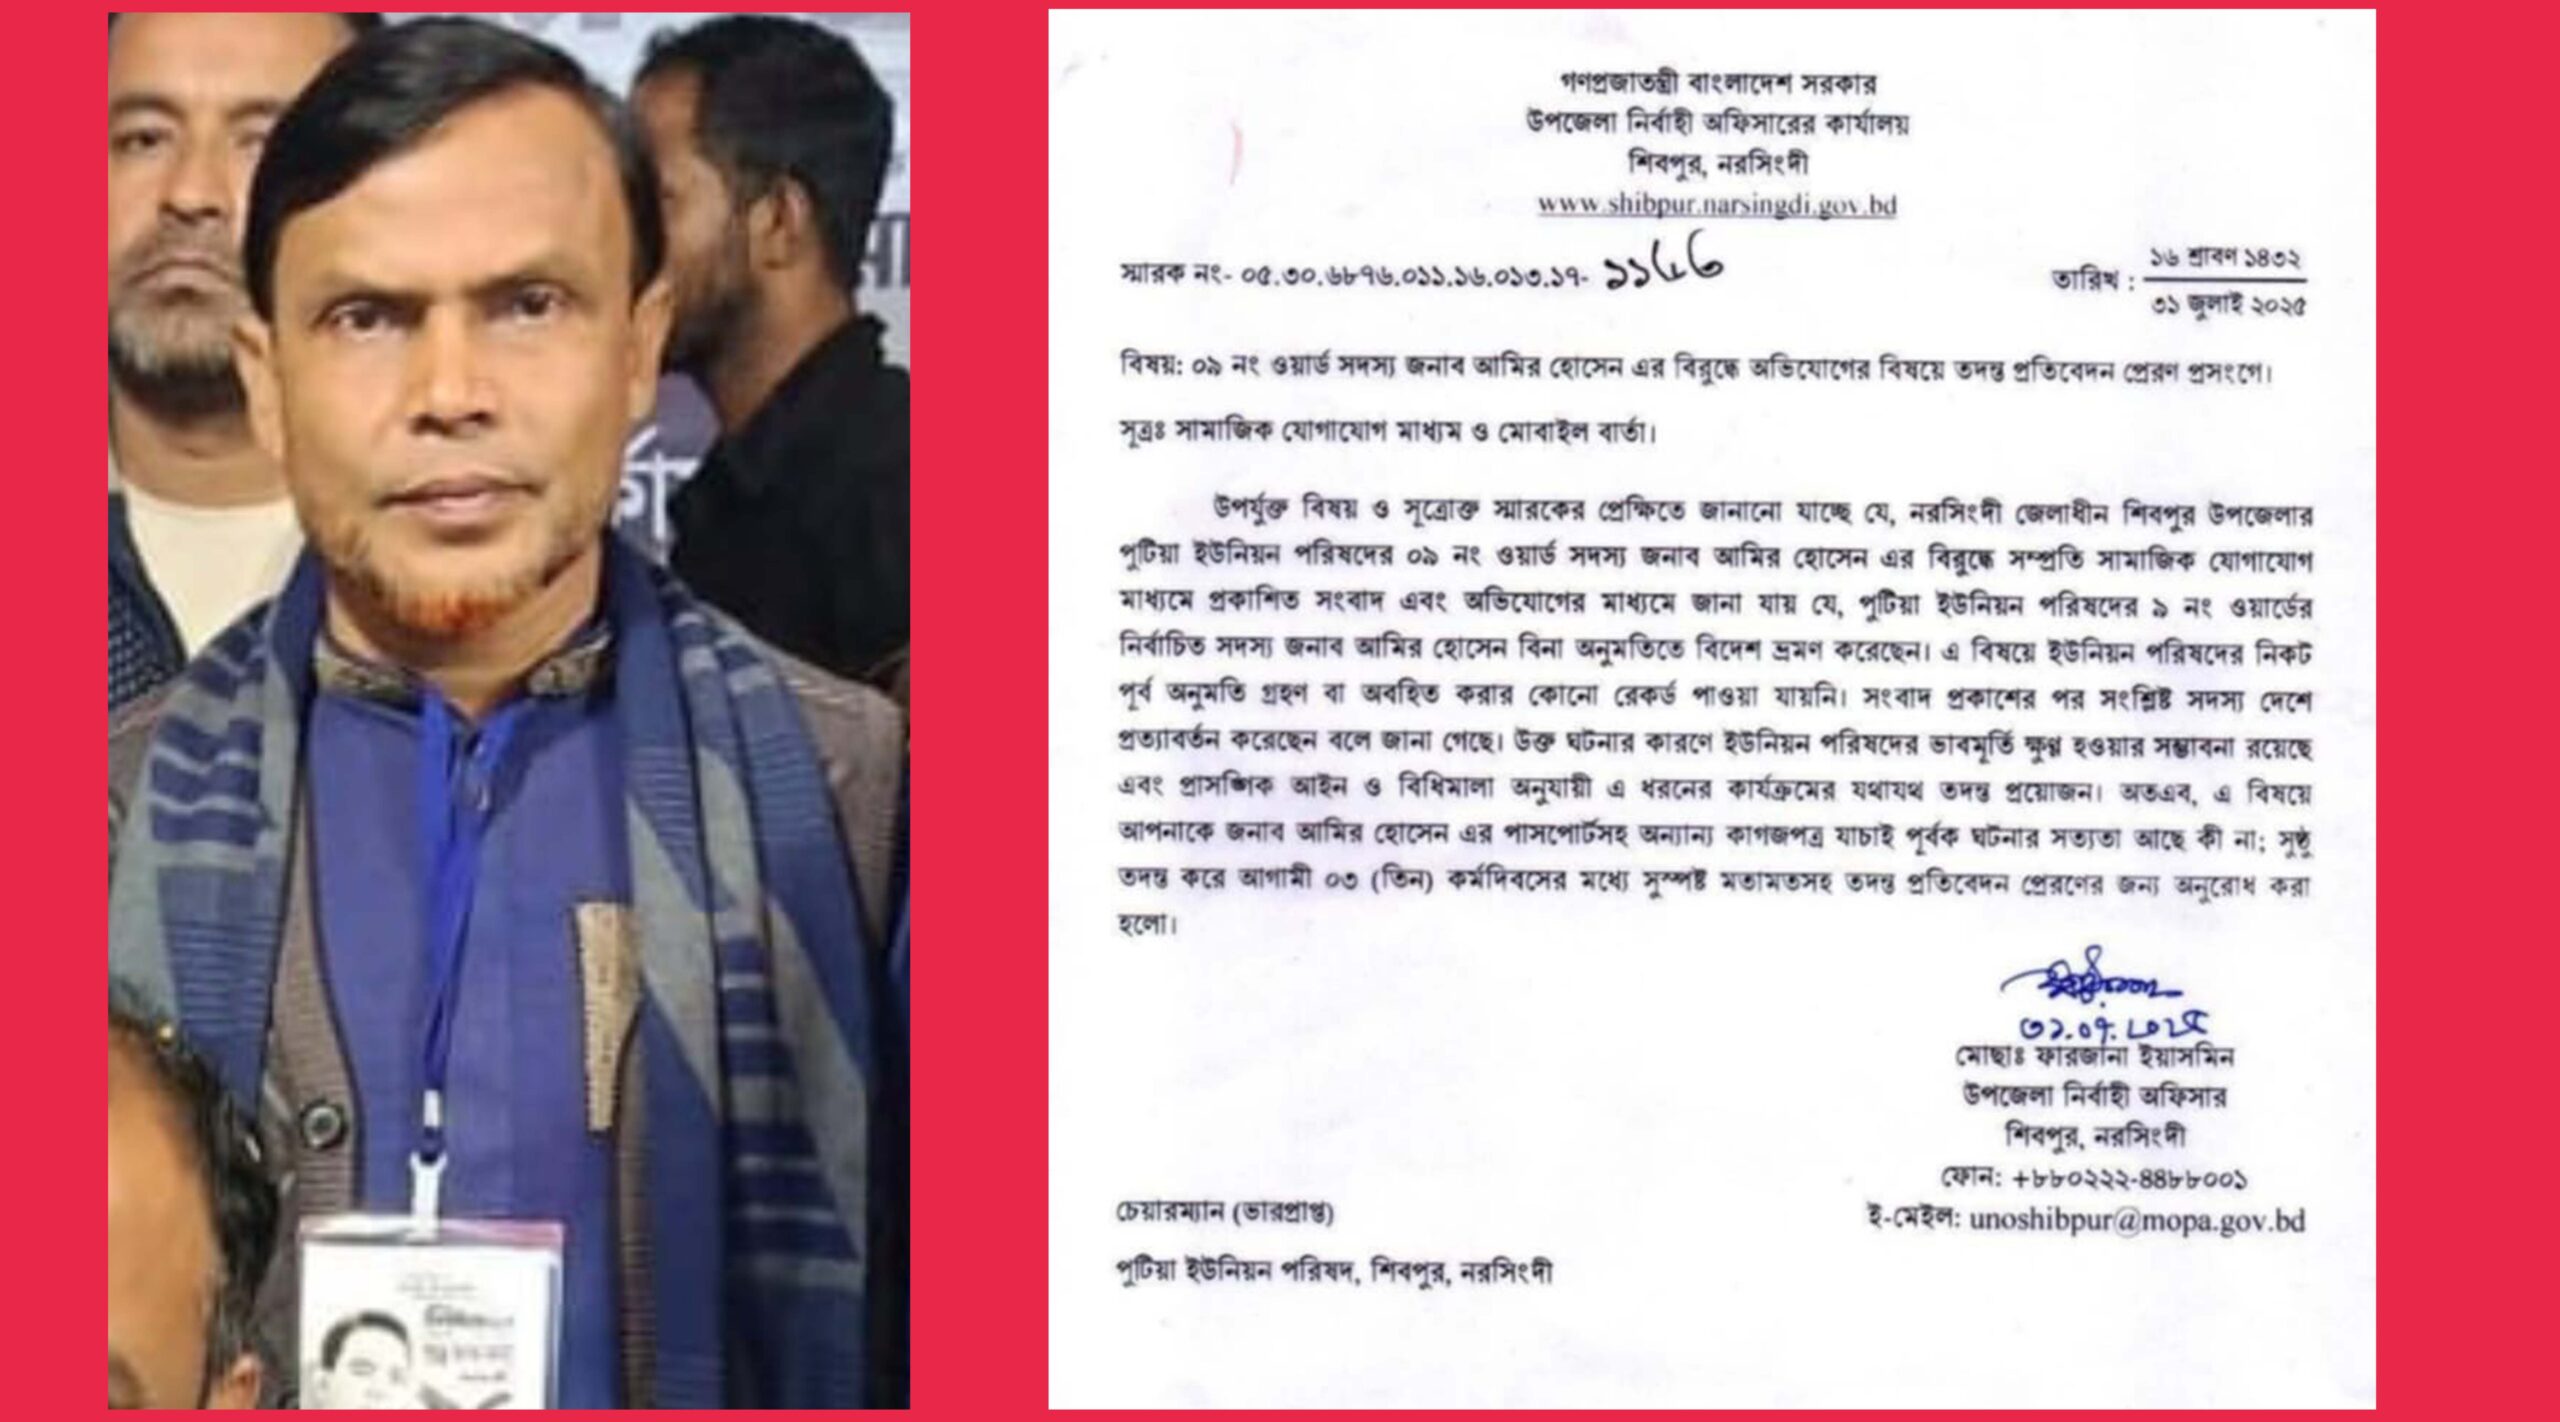 গণপ্রজাতন্ত্রী বাংলাদেশ সরকার
উপজেলা নির্বাহী অফিসারের কার্যালয়
শিবপুর, নরসিংদী
www.shibpur.narsingdi.gov.bd
স্মারক নং- ০৫.৩০.৬৮৭৬.০১১.১৬.০১৩.১৭- ১১৪৬
তারিখ :
১৬ শ্রাবণ ১৪৩২
৩১ জুলাই ২০২৫
বিষয়: ০৯ নং ওয়ার্ড সদস্য জনাব আমির হোসেন এর বিরুদ্ধে অভিযোগের বিষয়ে তদন্ত প্রতিবেদন প্রেরণ প্রসংগে।
সূত্রঃ সামাজিক যোগাযোগ মাধ্যম ও মোবাইল বার্তা।
উপর্যুক্ত বিষয় ও সূত্রোক্ত স্মারকের প্রেক্ষিতে জানানো যাচ্ছে যে, নরসিংদী জেলাধীন শিবপুর উপজেলার
পুটিয়া ইউনিয়ন পরিষদের ০৯ নং ওয়ার্ড সদস্য জনাব আমির হোসেন এর বিরুদ্ধে সম্প্রতি সামাজিক যোগাযোগ
মাধ্যমে প্রকাশিত সংবাদ এবং অভিযোগের মাধ্যমে জানা যায় যে, পুটিয়া ইউনিয়ন পরিষদের ৯ নং ওয়ার্ডের
নির্বাচিত সদস্য জনাব আমির হোসেন বিনা অনুমতিতে বিদেশ ভ্রমণ করেছেন। এ বিষয়ে ইউনিয়ন পরিষদের নিকট
পূর্ব অনুমতি গ্রহণ বা অবহিত করার কোনো রেকর্ড পাওয়া যায়নি। সংবাদ প্রকাশের পর সংশ্লিষ্ট সদস্য দেশে
প্রত্যাবর্তন করেছেন বলে জানা গেছে। উক্ত ঘটনার কারণে ইউনিয়ন পরিষদের ভাবমূর্তি ক্ষুণ্ণ হওয়ার সম্ভাবনা রয়েছে
এবং প্রাসঙ্গিক আইন ও বিধিমালা অনুযায়ী এ ধরনের কার্যক্রমের যথাযথ তদন্ত প্রয়োজন। অতএব, এ বিষয়ে
আপনাকে জনাব আমির হোসেন এর পাসপোর্টসহ অন্যান্য কাগজপত্র যাচাই পূর্বক ঘটনার সত্যতা আছে কী না; সুষ্ঠু
তদন্ত করে আগামী ০৩ (তিন) কর্মদিবসের মধ্যে সুস্পষ্ট মতামতসহ তদন্ত প্রতিবেদন প্রেরণের জন্য অনুরোধ করা
হলো।
৩১.০৭.২০২৫
মোছাঃ ফারজানা ইয়াসমিন
উপজেলা নির্বাহী অফিসার
শিবপুর, নরসিংদী
ফোন: +৮৮০২২২-৪৪৮৮০০১
ই-মেইল: unoshibpur@mopa.gov.bd
চেয়ারম্যান (ভারপ্রাপ্ত)
পুটিয়া ইউনিয়ন পরিষদ, শিবপুর, নরসিংদী